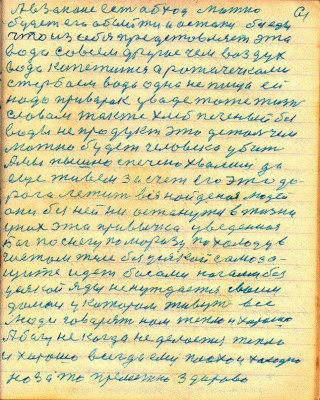 А в законе есть обход можно
будет его обойти и остаться
что из себя представляет эта
вода совсем другое чем воздух
вода
вода одна не пища ей
надо приварок у вас тоже
словам также хлеб печеный без
воды не продукт это делом чем
можно будет человека убить
А мы пышно спечено хвалим да
еще живем за счет его это до-
рога лежит вся людей
они без ней не останутся в жизни
у них эта привычка уведенная
Как по снегу по морозу по холоду в
чистом теле без всякой самоза-
щиты идет босыми ногами без
всякой яды не нуждается своим
домом у котором живут все
люди говорят нам тепло и хорошо
А Богу не когда не делается тепло
и хорошо всегда ему плохо и холодно
но за то приятно здорово